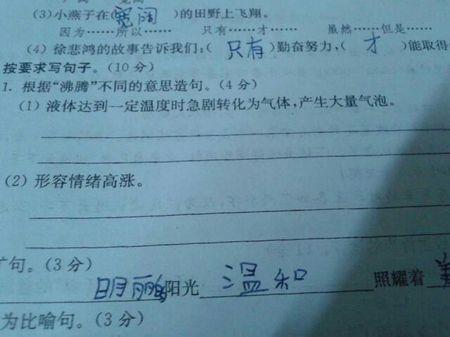 (3)小燕子在(宽阔)的田野上飞翔。
因为……所以…… 只有……才…… 虽然……但是……
(4)徐悲鸿的故事告诉我们:(只有)勤奋努力,(才)能取得
按要求写句子。(10分)
1. 根据“沸腾”不同的意思造句。(4分)
(1)液体达到一定温度时急剧转化为气体,产生大量气泡。
(2)形容情绪高涨。
句。(3分)
明丽阳光 温和 照耀着
为比喻句。(3分)